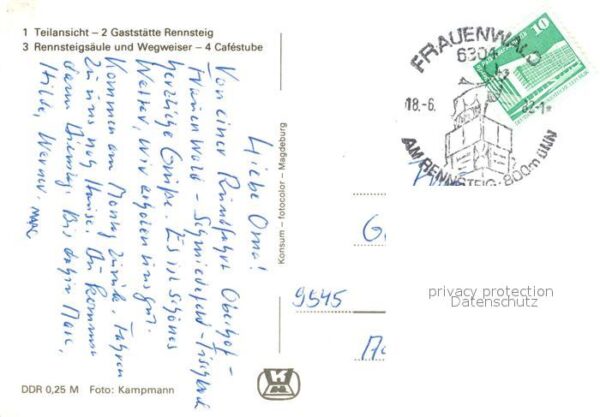 1 Teilansicht – 2 Gaststätte Rennsteig
3 Rennsteigsäule und Wegweiser – 4 Caféstube
Liebe Oma!
Von einer Rundfahrt Oberhof –
Frauenwald – Schmiedefeld –
herzliche Grüße. Es ist schönes
Wetter, wir erholen uns gut.
Kommen am Montag zurück. Fahren
zu uns nach Hause. Du kommen
dann Dienstag. Bis dahin
Hilde, Werner,
Konsum – fotocolor – Magdeburg
FRAUENWALD
6304
18.-6.
82-1
AM RENNSTEIG · 800m ÜNN
10
DEUTSCHE DEMOKRATISCHE REPUBLIK
9545
privacy protection
Datenschutz
DDR 0,25 M Foto: Kampmann